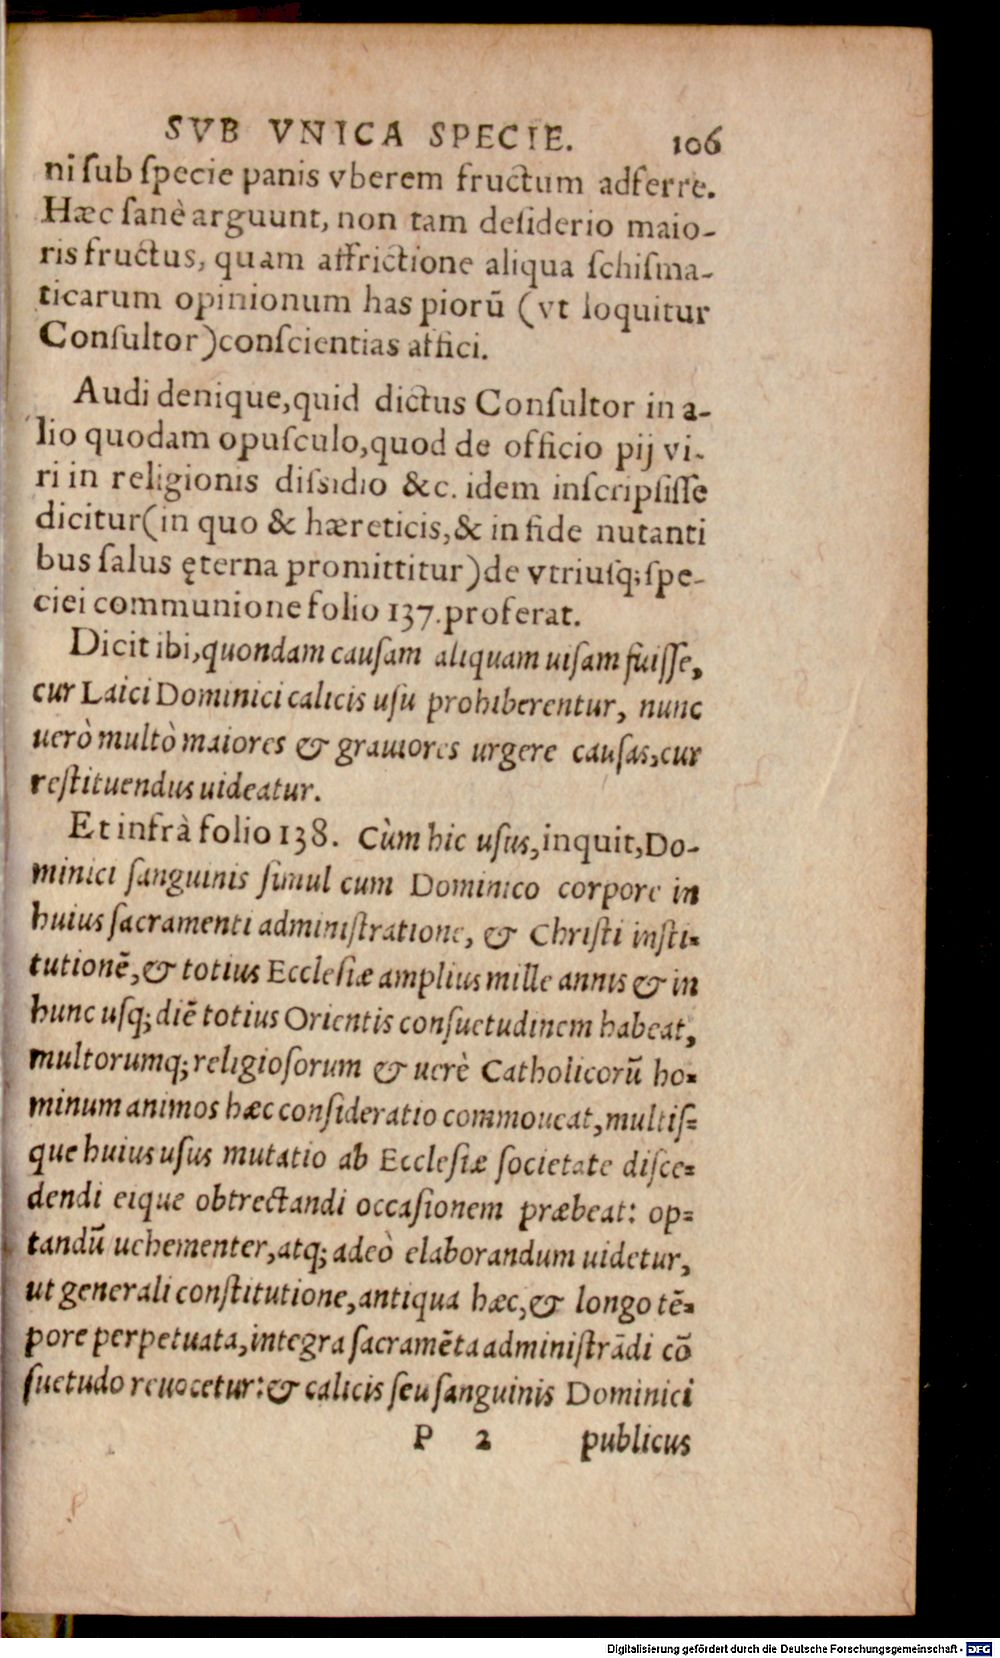 SVB VNICA SPECIE. 106
ni sub specie panis vberem fructum adferre.
Hæc sanè arguunt, non tam desiderio maio-
ris fructus, quam affrictione aliqua schisma-
ticarum opinionum has piorū (vt loquitur
Consultor)conscientias affici.
Audi denique,quid dictus Consultor in a-
lio quodam opusculo,quod de officio pij vi-
ri in religionis dissidio &c. idem inscripsisse
dicitur(in quo & hæreticis,& in fide nutanti
bus salus ęterna promittitur)de vtriusq;spe-
ciei communione folio 137.proferat.
Dicit ibi,quondam causam aliquam uisam fuisse,
cur Laici Dominici calicis usu prohiberentur, nunc
uerò multò maiores & grauiores urgere causas,cur
restituendus uideatur.
Et infrà folio 138. Cùm hic usus,inquit,Do-
minici sanguinis simul cum Dominico corpore in
huius sacramenti administratione, & Christi insti-
tutionē,& totius Ecclesiæ amplius mille annis & in
hunc usq;diē totius Orientis consuetudinem habeat,
multorumq;religiosorum & uerè Catholicorū ho-
minum animos hæc consideratio commoueat,multis-
que huius usus mutatio ab Ecclesiæ societate disce-
dendi eique obtrectandi occasionem præbeat: op-
tandū uehementer,atq;adeò elaborandum uidetur,
ut generali constitutione,antiqua hæc,& longo tē-
pore perpetuata,integra sacramēta administrādi cō
suetudo reuocetur:& calicis seu sanguinis Dominici
P 2 publicus
Digitalisierung gefördert durch die Deutsche Forschungsgemeinschaft - DFG